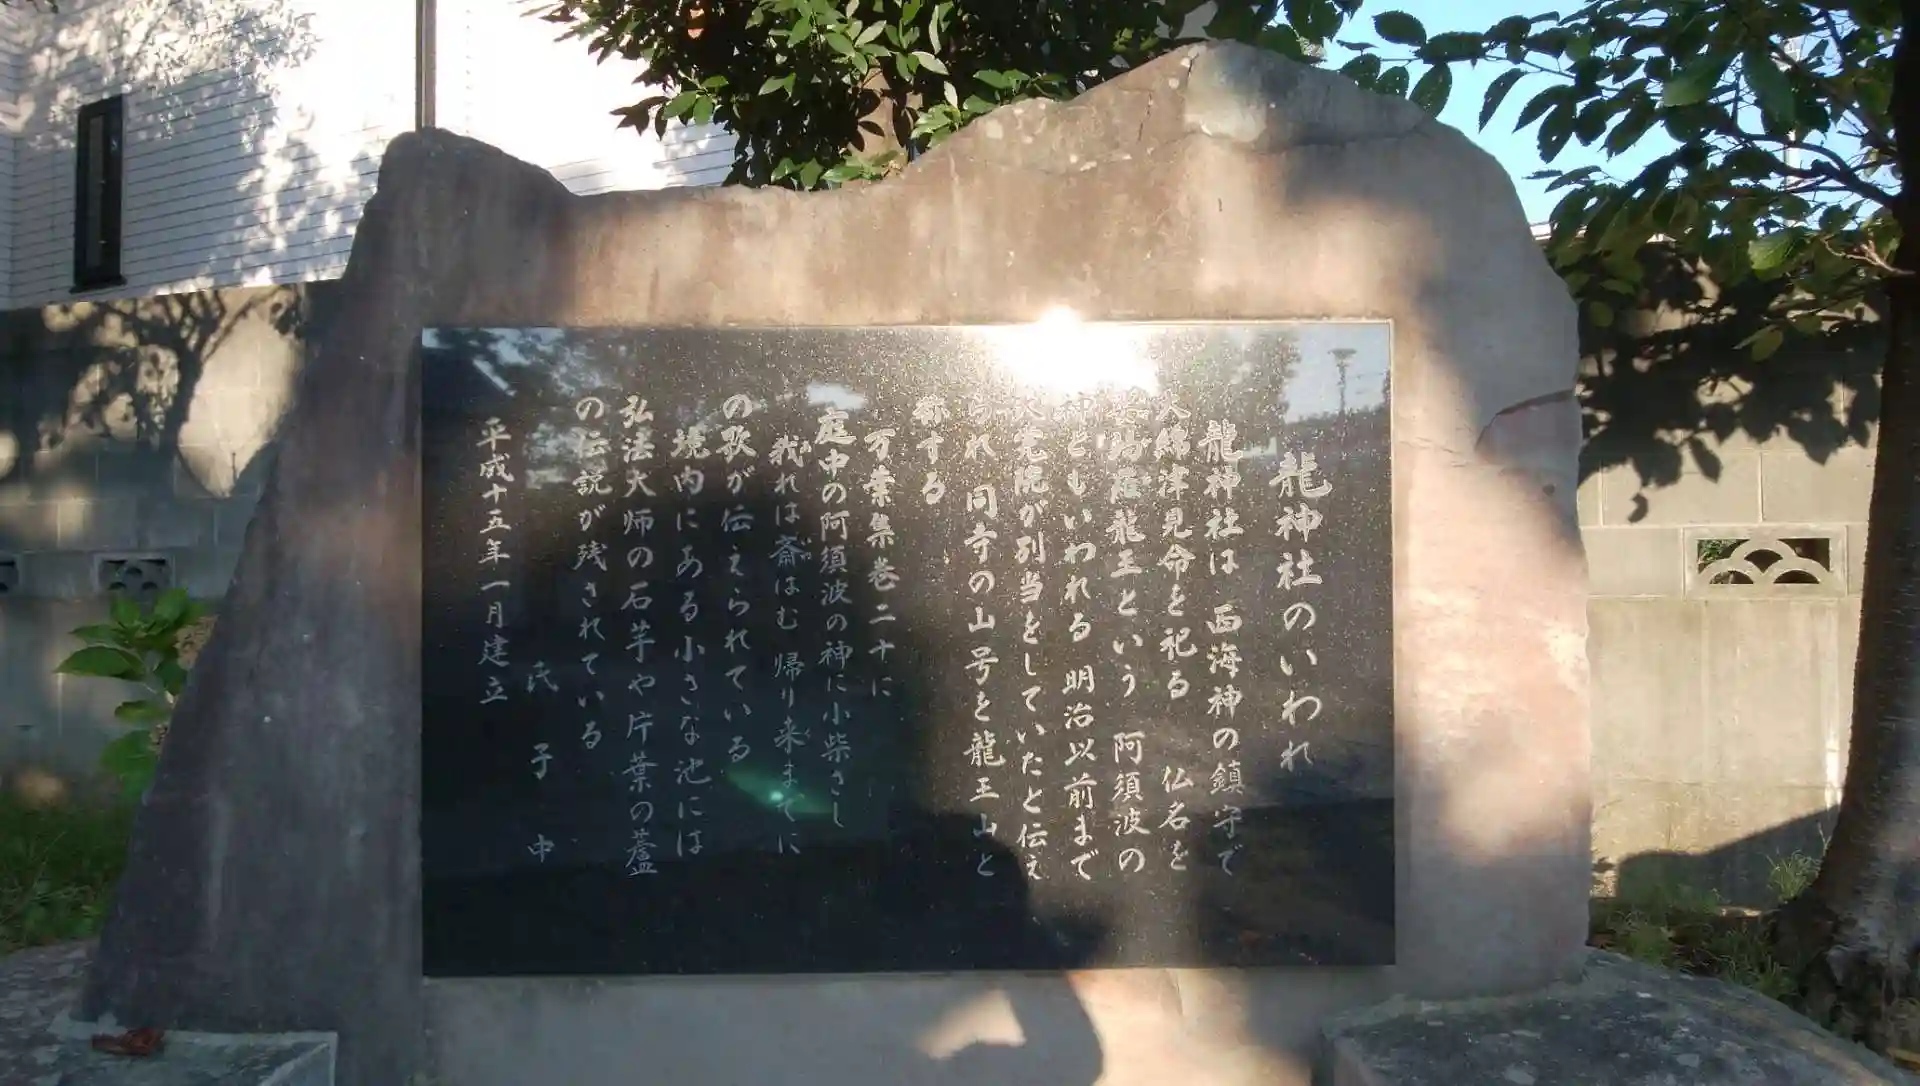 龍神社のいわれ
龍神社は 西海神の鎮守で
大綿津見命を祀る 仏名を
娑竭羅龍王という 阿須波の
神ともいわれる 明治以前まで
大覚院が別当をしていたと伝え
られ 同寺の山号を龍王山と
称する
万葉集巻二十に
庭中の阿須波の神に小柴さし
我れは斎はむ 帰り来までに
の歌が伝えられている
境内にある小さな池には
弘法大師の石芋や片葉の蘆
の伝説が残されている
氏子中
平成十五年一月建立